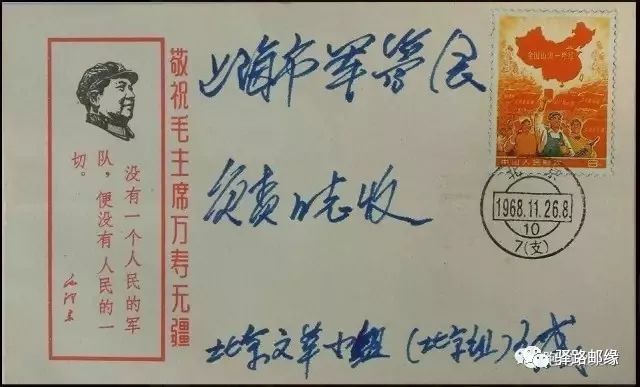 敬祝毛主席万寿无疆
没有一个人民的军
队,便没有人民的一
切。
毛泽东
上海市军管会
负责同志收
北京文革小组(北京组)
全国山河一片红
中国人民邮政
8
北京
1968.11.26.8
10
7(支)
驿路邮缘